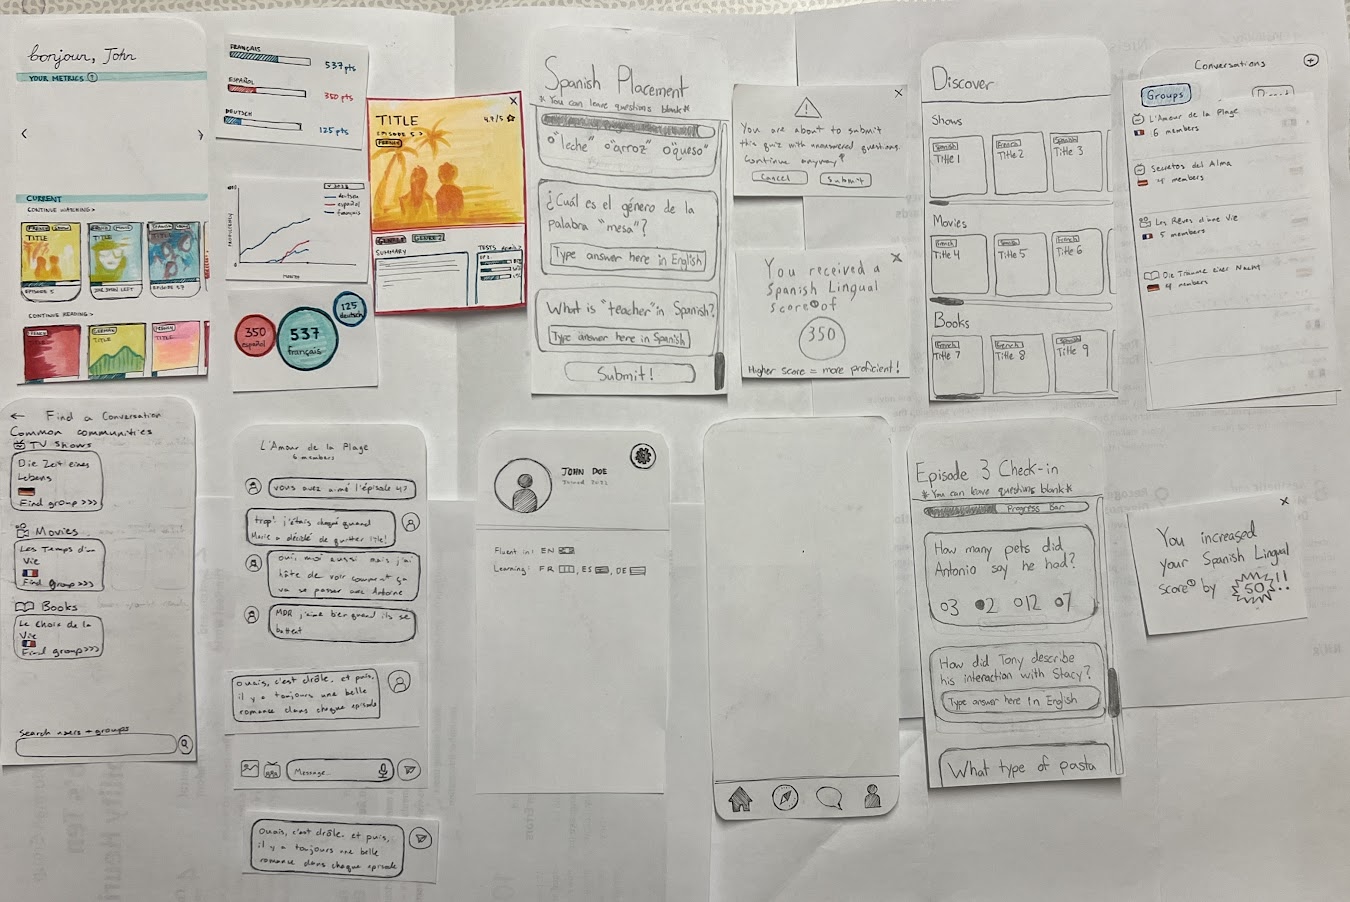 bonjour, John
YOUR METRICS
CURRENT
CONTINUE WATCHING >
FRENCH
TITLE
EPISODE 5
TITLE
TITLE
EPISODE 57
CONTINUE READING >
FRENCH
TITLE
GERMAN
TITLE
TITLE
FRANÇAIS
537 pts
ESPAÑOL
350 pts
DEUTSCH
125 pts
deutsch
español
français
PROFICIENCY
MONTH
350
español
537
français
125
deutsch
TITLE
EPISODE 5 >
FRENCH
4.7/5
GENRE 1
GENRE 2
SUMMARY
TESTS
Spanish Placement
* You can leave questions blank*
"leche" "arroz" "queso"
¿Cuál es el género de la
palabra "mesa"?
Type answer here in English
What is "teacher" in Spanish?
Type answer here in Spanish
Submit!
You are about to submit
this quiz with unanswered questions.
Continue anyway?
Cancel
Submit
You received a
Spanish Lingual
Score of
350
Higher score = more proficient!
Discover
Shows
Spanish
Title 1
French
Title 2
Spanish
Title 3
Movies
French
Title 4
Spanish
Title 5
French
Title 6
Books
French
Title 7
French
Title 8
Spanish
Title 9
Conversations
Groups
L'Amour de la Plage
6 members
Secretos del Alma
4 members
Les Rêves d'une Vie
5 members
Die Träume einer Nacht
4 members
Find a Conversation
Common communities
TV shows
Die Zeit eines
Lebens
Find group >>>
Movies
Les Temps d'un
Vie
Find group >>>
Books
Le choix de la
Vie
Find group >>>
Search users + groups
L'Amour de la Plage
6 members
vous avez aimé l'épisode 4?
trop! j'étais choqué quand
Marie a décidé de quitter l'île!
oui, moi aussi mais j'ai
hâte de voir comment ça
va se passer avec Antoine
MDR j'aime bien quand ils se
battent
Ouais, c'est drôle. et puis,
il y a toujours une belle
romance dans chaque episode
Message...
Ouais, c'est drôle. et puis,
il y a toujours une belle
romance dans chaque episode
JOHN DOE
Joined 2022
Fluent in: EN
Learning: FR, ES, DE
Episode 3 Check-in
* You can leave questions blank*
Progress Bar
How many pets did
Antonio say he had?
3 2 12 7
How did Tony describe
his interaction with Stacy?
Type answer here in English
What type of pasta
You increased
your Spanish Lingual
score by 50!!